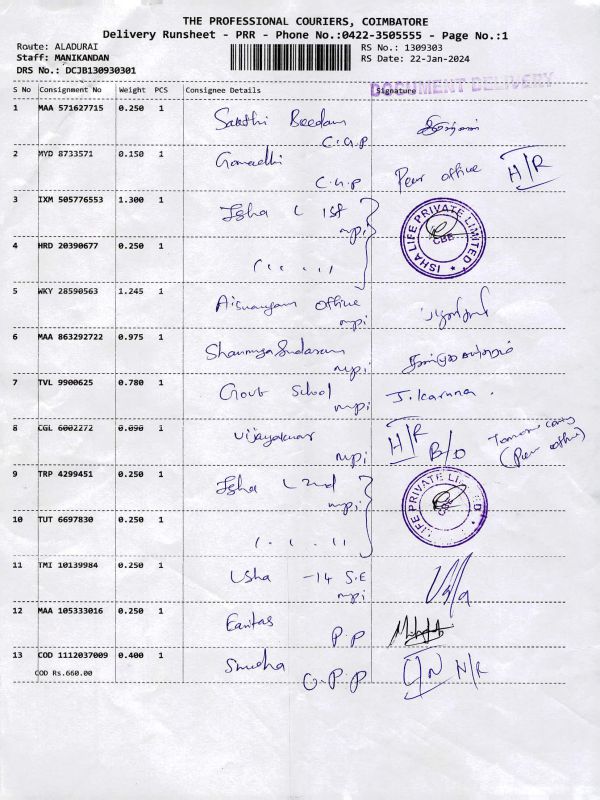 THE PROFESSIONAL COURIERS, COIMBATORE
Delivery Runsheet - PRR - Phone No.:0422-3505555 - Page No.:1
Route: ALADURAI
RS No.: 1309303
Staff: MANIKANDAN
RS Date: 22-Jan-2024
DRS No.: DCJB130930301
DOCUMENT DELIVERY
S No Consignment No Weight PCS Consignee Details Signature
1 MAA 571627715 0.250 1
2 MYD 8733571 0.150 1 Peer office H/R
3 IXM 505776553 1.300 1 Isha L 1st
mpi
ISHA LIFE PRIVATE LIMITED
CBE
4 HRD 20390677 0.250 1
5 WKY 28590563 1.245 1 office
mpi
6 MAA 863292722 0.975 1
mpi
7 TVL 9900625 0.780 1 Govt School J. Karuna.
mpi
8 CGL 6002272 0.090 1 Vijayakumar H/R B/O
mpi (Peer office)
9 TRP 4299451 0.250 1 Isha L 2nd
mpi
LIFE PRIVATE LI ED
10 TUT 6697830 0.250 1
11 TMI 10139984 0.250 1 Usha -14 S.E
mpi
12 MAA 105333016 0.250 1
P.P
13 COD 1112037009 0.400 1 N/R
COD Rs.660.00 G.P.P